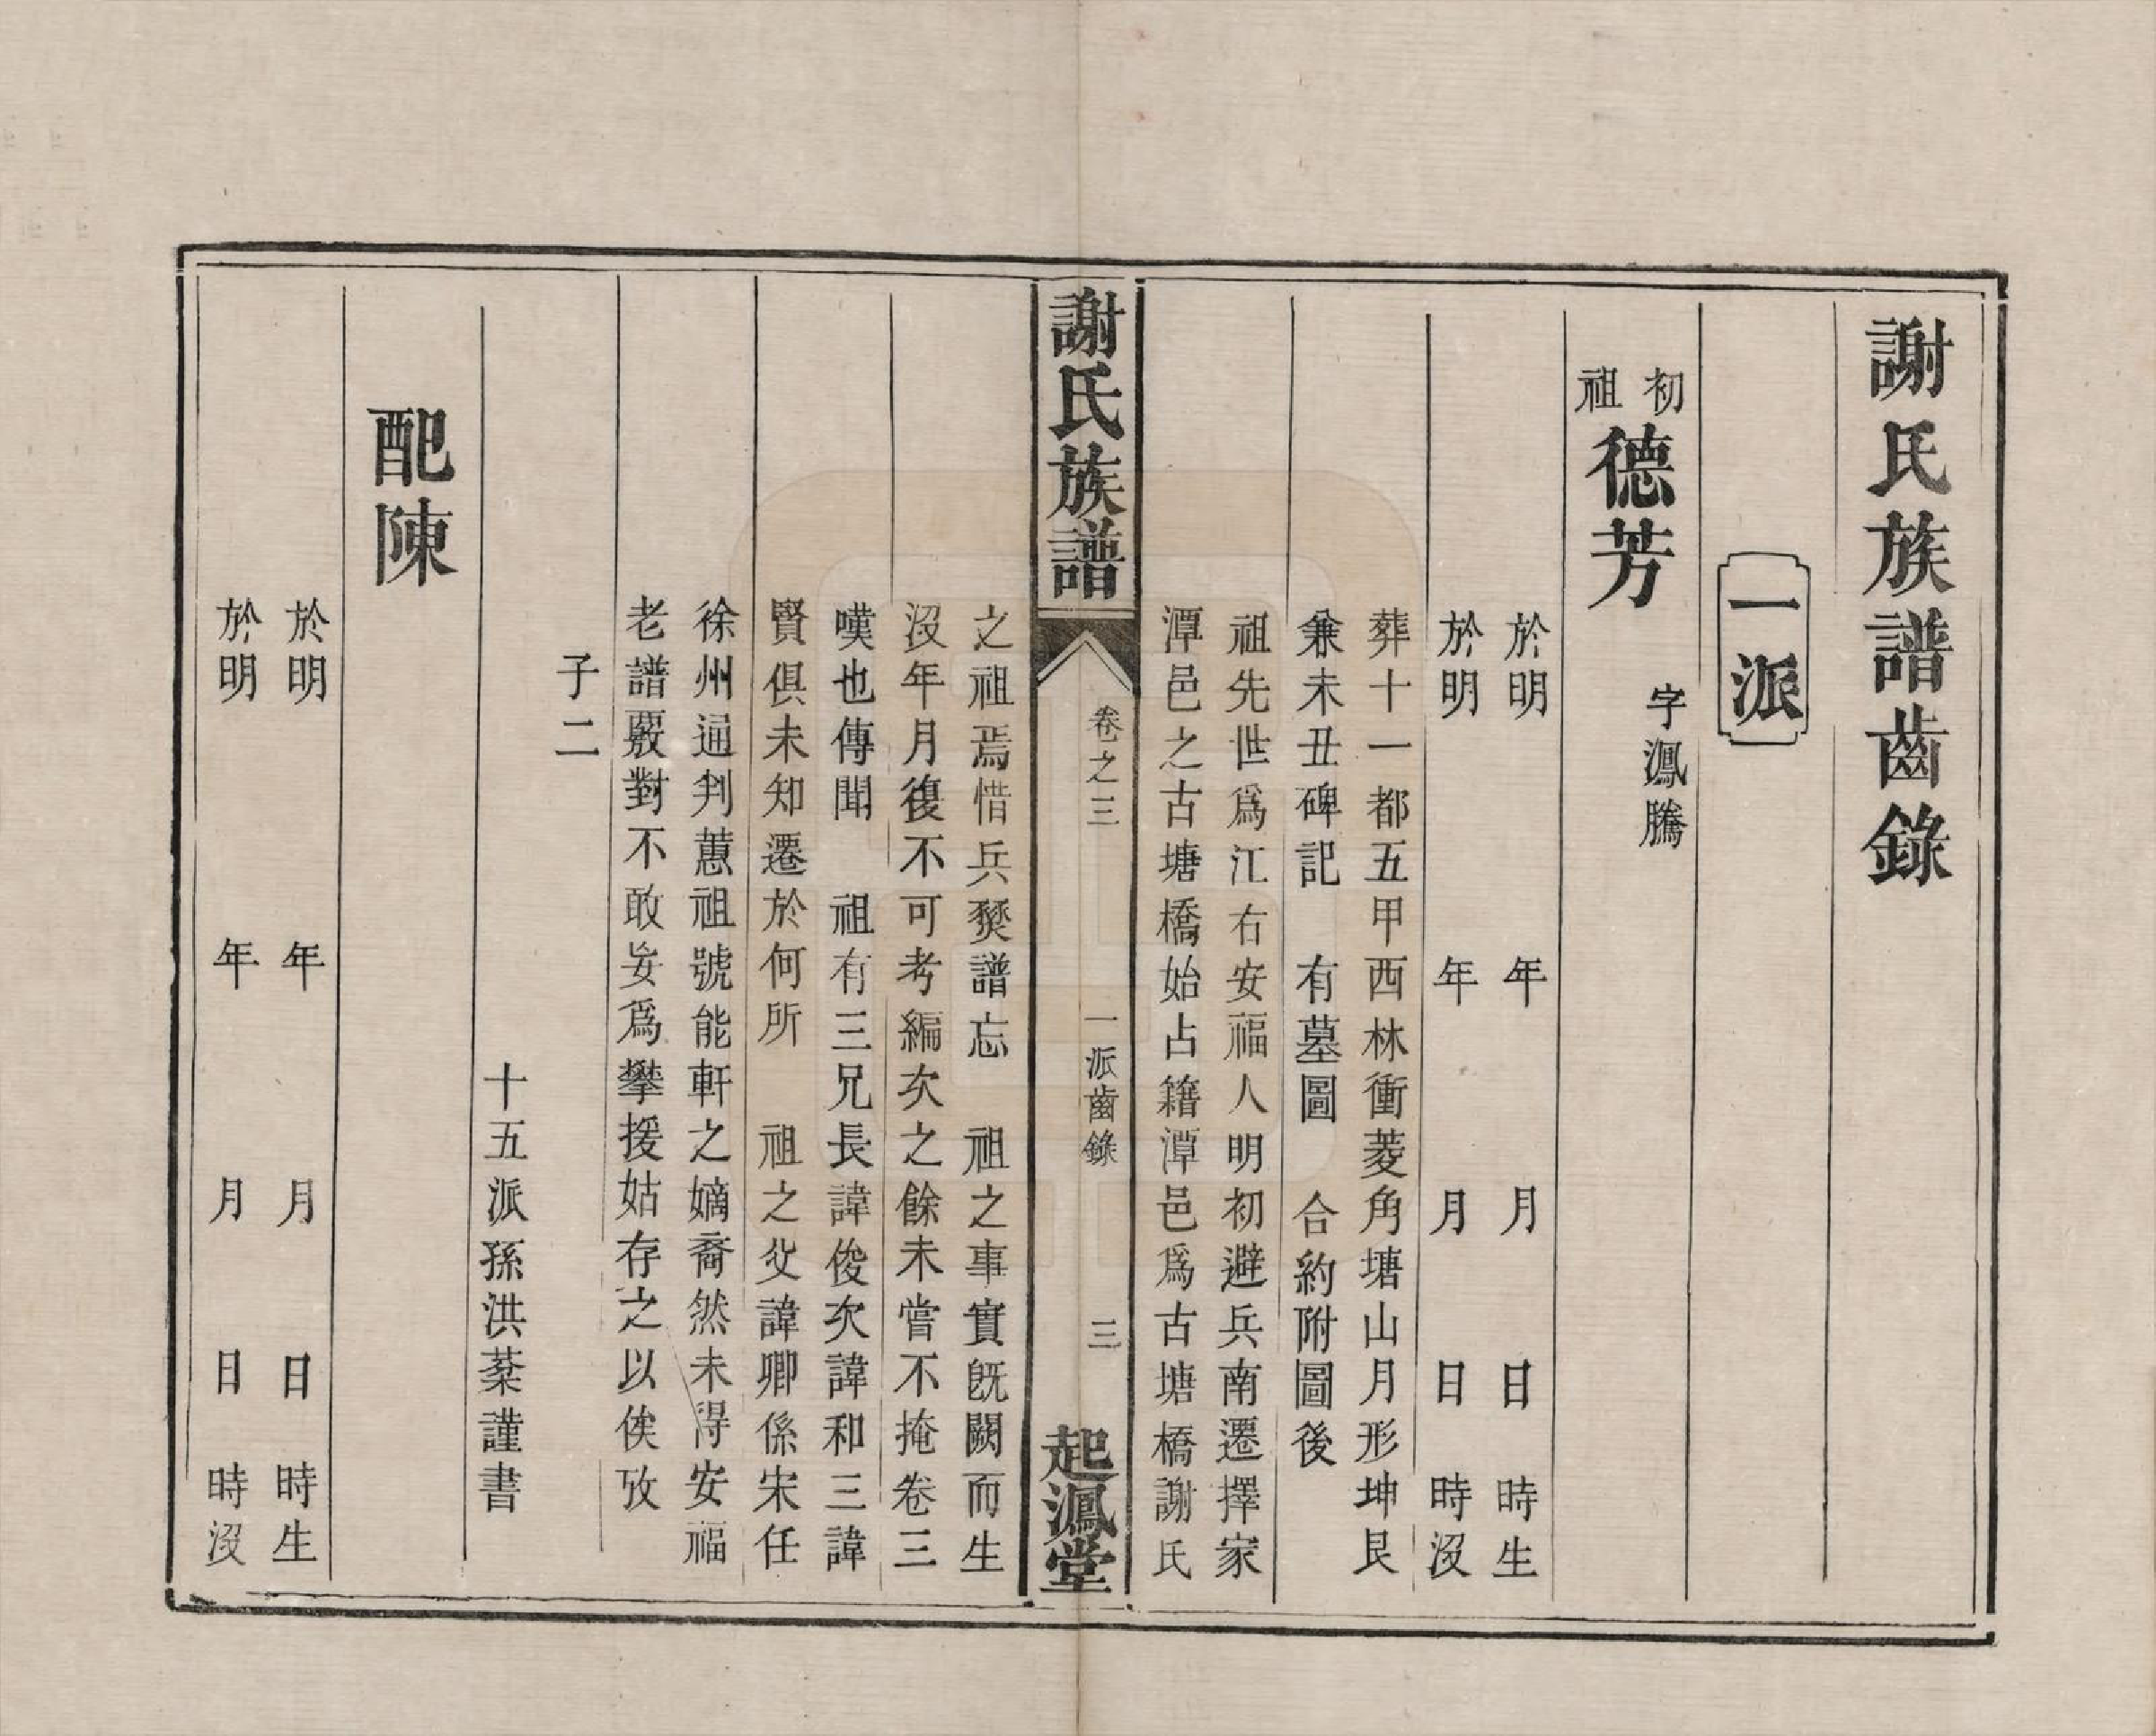 謝氏族譜齒錄
一派
初祖德芳 字鳳騰
於明 年 月 日 時生
於明 年 月 日 時沒
葬十一都五甲西林衝菱角塘山月形坤艮
兼未丑碑記 有墓圖 合約附圖後
祖先世爲江右安福人明初避兵南遷擇家
潭邑之古塘橋始占籍潭邑爲古塘橋謝氏
謝氏族譜 卷之三 一派齒錄 三 起鳳堂
之祖焉惜兵燹譜忘 祖之事實旣闕而生
沒年月復不可考編次之餘未嘗不掩卷三
嘆也傳聞 祖有三兄長諱俊次諱和三諱
賢俱未知遷於何所 祖之父諱卿係宋任
徐州通判蕙祖號能軒之嫡裔然未得安福
老譜覈對不敢妄爲攀援姑存之以俟攷
子二
十五派孫洪棻謹書
配陳
於明 年 月 日 時生
於明 年 月 日 時沒